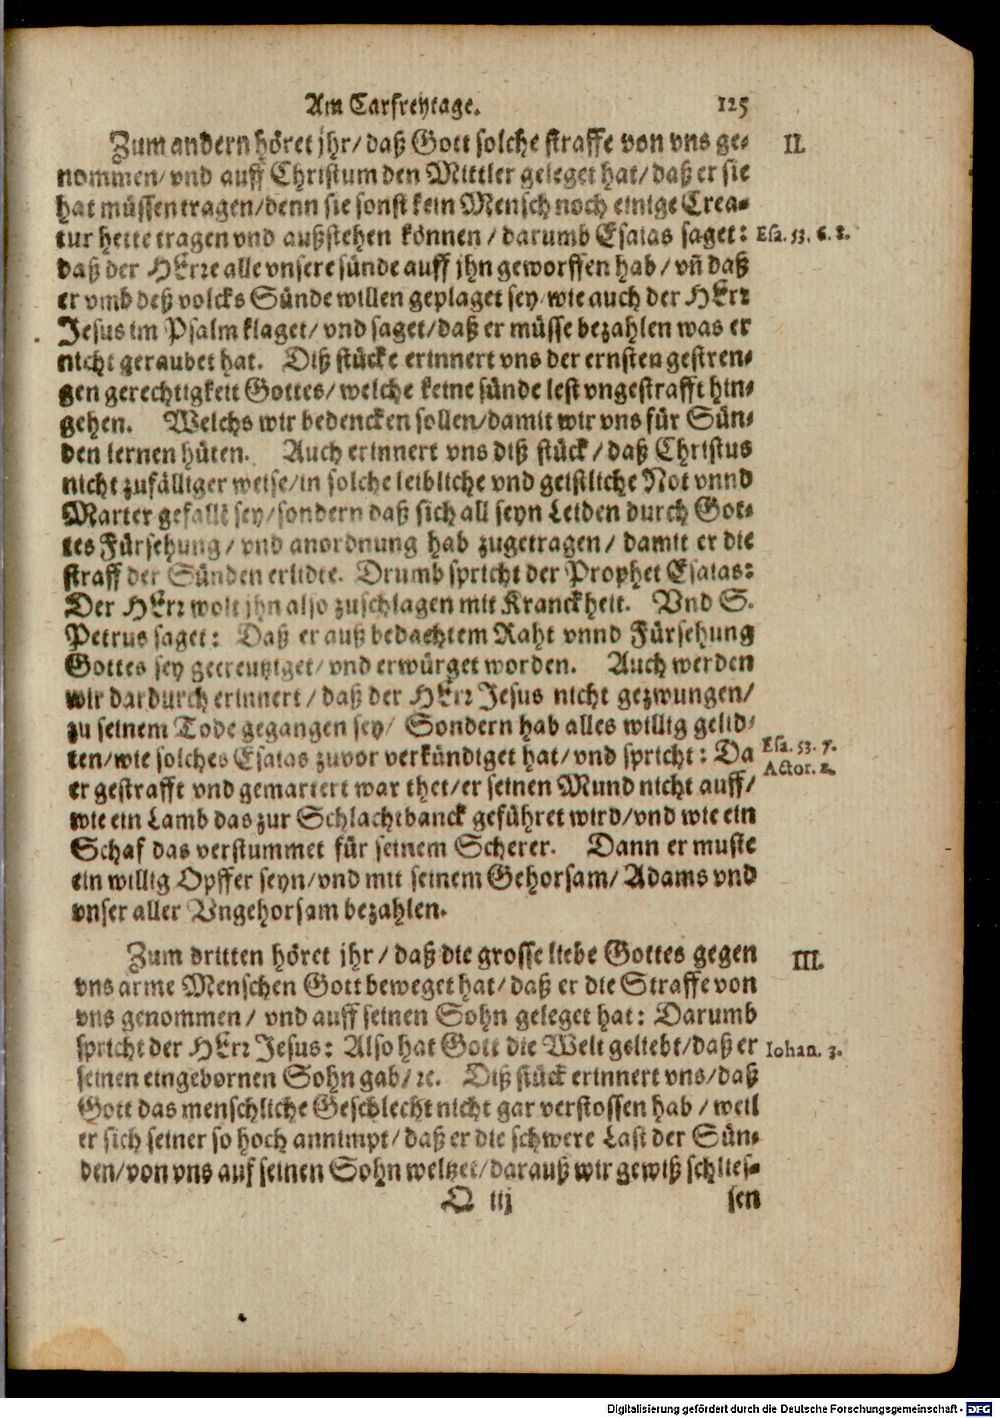 Am Carfreytage. 125
Zum andern höret jhr/ daß Gott solche straffe von vns ge- II.
nommen/ vnd auff Christum den Mittler geleget hat/ daß er sie
hat müssen tragen/ denn sie sonst kein Mensch noch einige Crea-
tur hette tragen vnd außstehen können/ darumb Esaias saget: Esa. 53. 6. 8.
daß der HErre alle vnsere sünde auff jhn geworffen hab/ vñ daß
er vmb deß volcks Sünde willen geplaget sey/ wie auch der HErr
Jesus im Psalm klaget/ vnd saget/ daß er müsse bezahlen was er
nicht geraubet hat. Diß stücke erinnert vns der ernsten gestren-
gen gerechtigkeit Gottes/ welche keine sünde lest vngestrafft hin-
gehen. Welchs wir bedencken sollen/ damit wir vns für Sün-
den lernen hüten. Auch erinnert vns diß stück/ daß Christus
nicht zufälliger weise/ in solche leibliche vnd geistliche Not vnnd
Marter gefalle sey/ sondern daß sich all seyn Leiden durch Got-
tes Fürsehung/ vnd anordnung hab zugetragen/ damit er die
straff der Sünden erlidte. Drumb spricht der Prophet Esaias:
Der HErr wolt jhn also zuschlagen mit Kranckheit. Vnd S.
Petrus saget: Daß er auß bedachtem Raht vnnd Fürsehung
Gottes sey gecreutziget/ vnd erwürget worden. Auch werden
wir dardurch erinnert/ daß der HErr Jesus nicht gezwungen/
zu seinem Tode gegangen sey/ Sondern hab alles willig gelid-
ten/ wie solches Esaias zuvor verkündiget hat/ vnd spricht: Da Esa. 53. 7.
Actor. 2.
er gestrafft vnd gemartert war thet/ er seinen Mund nicht auff/
wie ein Lamb das zur Schlachtbanck geführet wird/ vnd wie ein
Schaf das verstummet für seinem Scherer. Dann er muste
ein willig Opffer seyn/ vnd mit seinem Gehorsam/ Adams vnd
vnser aller Vngehorsam bezahlen.
Zum dritten höret jhr/ daß die grosse liebe Gottes gegen III.
vns arme Menschen Gott beweget hat/ daß er die Straffe von
vns genommen/ vnd auff seinen Sohn geleget hat: Darumb
spricht der HErr Jesus: Also hat Gott die Welt geliebt/ daß er Iohan. 3.
seinen eingebornen Sohn gab/ ꝛc. Diß stück erinnert vns/ daß
Gott das menschliche Geschlecht nicht gar verstossen hab/ weil
er sich seiner so hoch annimpt/ daß er die schwere Last der Sün-
den/ von vns auf seinen Sohn weltzet/ darauß wir gewiß schlies-
Q iij sen
Digitalisierung gefördert durch die Deutsche Forschungsgemeinschaft - DFG